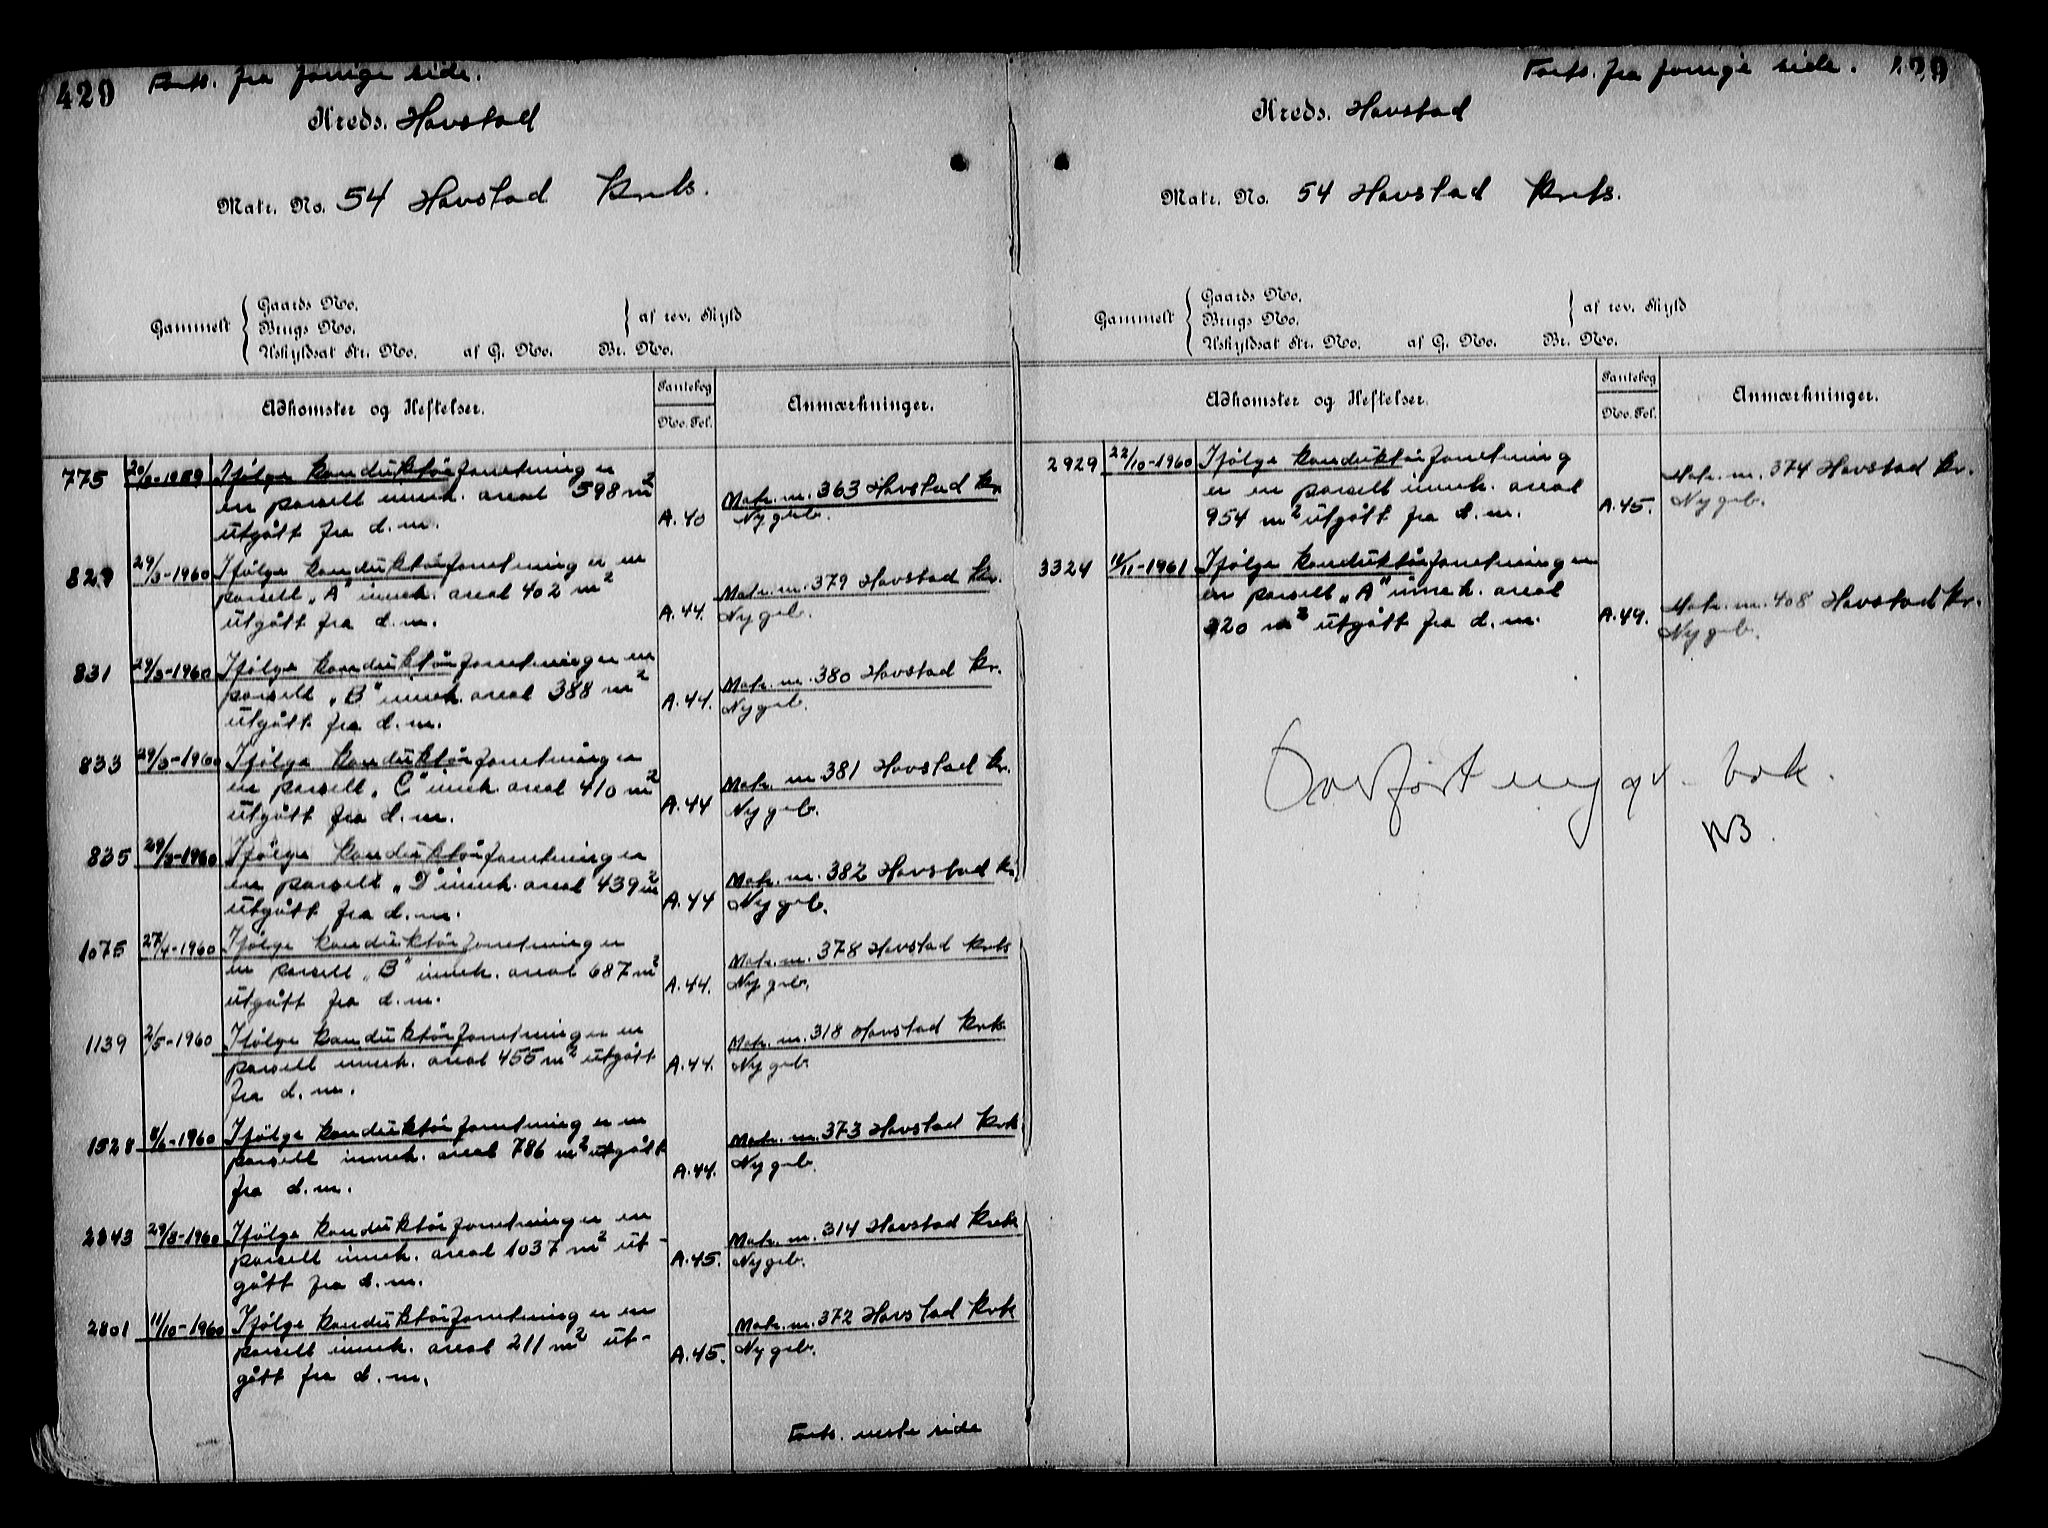 420 Forts. fra forrige side.
Kreds. Havstad
Matr. No. 54 Havstad krets.
Gammelt
Gaards No.
Brugs No.
Uskyldsat Str. No. af G. No. Br. No.
af rev. Skyld
Adkomster og Heftelser.
Pantebog
No. Fol.
Anmærkninger.
775 1959 Ifølge konduktørforretning er
en parsell inneh. areal 598 m²
utgått fra d.m.
A.40
Matr. nr. 363 Havstad kr.
Ny geb.
829 29/3-1960 Ifølge konduktørforretning er en
parsell „A" inneh. areal 402 m²
utgått fra d.m.
A.44.
Matr. nr. 379 Havstad kr.
Ny geb.
831 29/3-1960 Ifølge konduktørforretning er en
parsell „B" inneh. areal 388 m²
utgått fra d.m.
A.44.
Matr. nr. 380 Havstad kr.
Ny geb.
833 29/3-1960 Ifølge konduktørforretning er
en parsell „C" inneh. areal 410 m²
utgått fra d.m.
A.44
Matr. nr 381 Havstad kr.
Ny geb.
835 29/3-1960 Ifølge konduktørforretning er
en parsell „D" inneh. areal 439 m²
utgått fra d.m.
A.44
Matr. nr. 382 Havstad kr
Ny geb.
1075 27/4-1960 Ifølge konduktørforretning er
en parsell „B" inneh. areal 687 m²
utgått fra d.m.
A.44.
Matr. nr. 378 Havstad krets
Ny geb.
1139 2/5-1960 Ifølge konduktørforretning er en
parsell inneh. areal 455 m² utgått
fra d.m.
A.44.
Matr. nr. 318 Havstad krk.
Ny geb.
1528 -1960 Ifølge konduktørforretning er en
parsell inneh. areal 786 m² utgått
fra d.m.
A.44.
Matr. nr. 373 Havstad krk.
Ny geb.
2343 29/8-1960 Ifølge konduktørforretning er en
parsell inneh. areal 1037 m² ut-
gått fra d.m.
A.45.
Matr. nr. 314 Havstad krek
Ny geb.
2801 11/10-1960 Ifølge konduktørforretning er en
parsell inneh. areal 211 m² ut-
gått fra d.m.
A.45.
Matr. nr. 372 Havstad krk
Ny geb.
Forts. neste side
Forts. fra forrige side.
Kreds. Havstad
Matr. No. 54 Havstad krets.
Gammelt
Gaards No.
Brugs No.
Uskyldsat Str. No. af G. No. Br. No.
af rev. Skyld
Adkomster og Heftelser.
Pantebog
No. Fol.
Anmærkninger.
2929 22/10-1960 Ifølge konduktørforretning
er en parsell inneh. areal
954 m² utgått fra d.m.
A.45.
Matr. nr. 374 Havstad kr.
Ny geb.
3324 11/11-1961 Ifølge konduktørforretning er
en parsell „A" inneh. areal
320 m² utgått fra d.m.
A.49.
Matr. nr. 408 Havstad kr.
Ny geb.
Overført ny gr. bok.